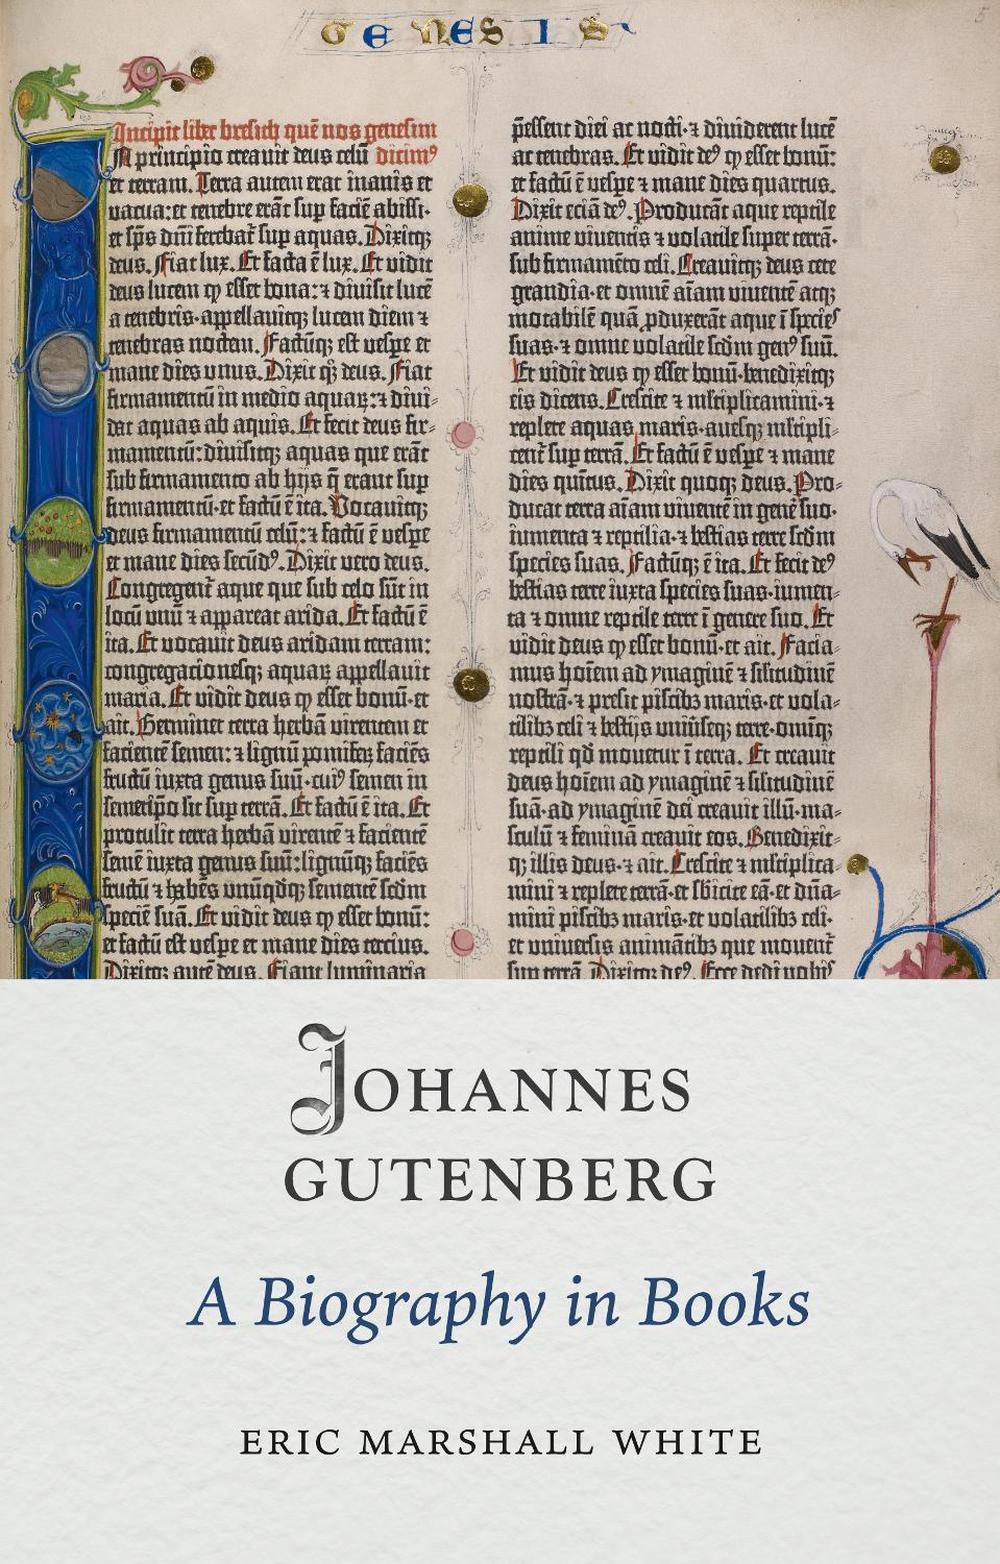 GENESIS
5
Incipit liber bresich quē nos genesim
In principio creauit deus celū dicim⁹
et terram. Terra autem erat inanis et
vacua: et tenebre erāt sup faciē abissi.
et sp̄s dn̄i ferebat̄ sup aquas. Dixitqꝫ
deus. Fiat lux. Et facta ē lux. Et vidit
deus lucem ꝙ esset bona: ⁊ diuisit lucē
a tenebris. appellauitqꝫ lucem diem ⁊
tenebras noctem. Factūqꝫ est vespe et
mane dies vnus. Dixit qꝫ deus. Fiat
firmamentū in medio aquaꝝ: ⁊ diui-
dat aquas ab aquis. Et fecit deus fir-
mamentū: diuisitqꝫ aquas que erāt
sub firmamento ab hijs q̄ erant sup
firmamentū. et factū ē ita. Vocauitqꝫ
deus firmamentū celū: ⁊ factū ē vespe
et mane dies secūd⁹. Dixit vero deus.
Congregent̄ aque que sub celo sūt in
locū vnū ⁊ appareat arida. Et factū ē
ita. Et vocauit deus aridam terram:
congregacionesqꝫ aquaꝝ appellauit
maria. Et vidit deus ꝙ esset bonū. et
ait. Germinet terra herbā virentem et
facientē semen: ⁊ lignū pomifeꝝ faciēs
fructū iuxta genus suū. cui⁹ semen in
semetip̄o sit sup terrā. Et factū ē ita. Et
protulit terra herbā virentē ⁊ facientē
semē iuxta genus suū: lignūqꝫ faciēs
fructū ⁊ habēs vnūqdqꝫ sementē scdm
speciē suā. Et vidit deus ꝙ esset bonū:
et factū est vespe et mane dies tercius.
Dixitqꝫ autē deus. Fiant luminaria
p̄essent diei ac nocti. ⁊ diuiderent lucē
ac tenebras. Et vidit de⁹ ꝙ esset bonū:
et factū ē vespe ⁊ mane dies quartus.
Dixit eciā de⁹. Producāt aque reptile
anime viuentis ⁊ volatile super terrā.
sub firmamēto celi. Creauitqꝫ deus cete
grandia. et omnē aīam viuentē atqꝫ
motabilē quā ꝓduxerāt aque ī species
suas. ⁊ omne volatile scdm gen⁹ suū.
Et vidit deus ꝙ esset bonū. benedixitqꝫ
eis dicens. Crescite ⁊ mltiplicamini. ⁊
replete aquas maris. auesqꝫ mltipli-
cent̄ sup terrā. Et factū ē vespe ⁊ mane
dies quītus. Dixit quoqꝫ deus. Pro-
ducat terra aīam viuentē in genē suo.
iumenta ⁊ reptilia. ⁊ bestias terre scdm
species suas. Factūqꝫ ē ita. Et fecit de⁹
bestias terre iuxta species suas. iumen-
ta ⁊ omne reptile terre ī genere suo. Et
vidit deus ꝙ esset bonū. et ait. Facia-
mus hoīem ad ymaginē ⁊ silitudinē
nostrā. ⁊ presit piscibꝫ maris. et vola-
tilibꝫ celi ⁊ bestijs vniūseqꝫ terre. omīqꝫ
reptili qd mouetur ī terra. Et creauit
deus hoīem ad ymaginē ⁊ silitudinē
suā. ad ymaginē dei creauit illū. ma-
sculū ⁊ feminā creauit eos. Benedixit-
qꝫ illis deus. ⁊ ait. Crescite ⁊ mltiplica-
mini ⁊ replete terrā. et sbicite eā. et dn̄a-
mini piscibꝫ maris. et volatilibꝫ celi.
et vniuersis animātibꝫ que mouent̄
sup terrā. Dixitqꝫ de⁹. Ecce dedi vobis
JOHANNES
GUTENBERG
A Biography in Books
ERIC MARSHALL WHITE